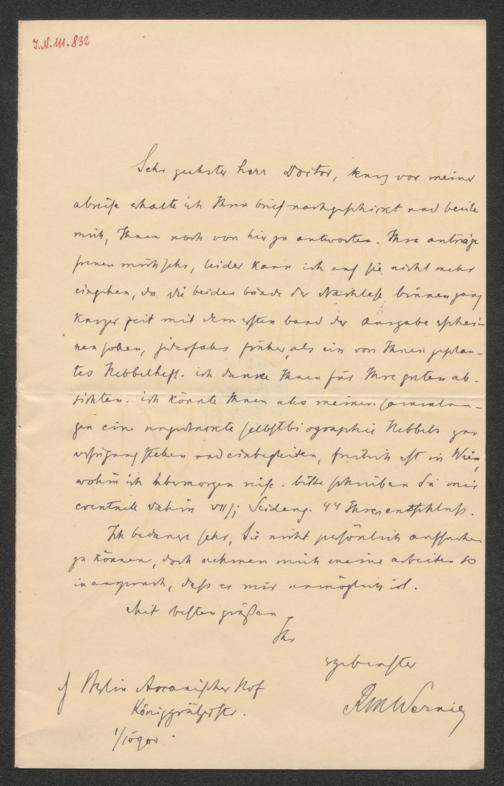 I.N. 111.832
Sehr geehrter herr Doctor, kurz vor meiner
abreise erhalte ich Ihren brief nachgeschickt und beeile
mich, Ihnen noch von hier zu antworten. Ihre anträge
freuen mich sehr, leider kann ich auf sie nicht mehr
eingehen, da die beiden bände der Nachlese binnen ganz
kurzer zeit mit dem ersten band der ausgabe erschei-
nen sollen, jedesfalls früher, als ein von Ihnen geplan-
tes Hebbelheft. ich danke Ihnen für Ihre guten ab-
sichten. ich könnte Ihnen aus meinen sammlun-
gen eine ungedruckte selbstbiographie Hebbels zur
verfügung stellen und einbegleiten, freilich erst in Wien,
wohin ich übermorgen reise. bitte schreiben Sie mir
eventuell dahin VII/1 Seideng. 44 Ihren entschluss.
Ich bedaure sehr, Sie nicht persönlich aufsuchen
zu können, doch nehmen mich meine arbeiten so
in anspruch, dass es mir unmöglich ist.
Mit besten grüßen
Ihr
ergebenster
RMWerner
Berlin Askanischer Hof
Königgrätzerstr.
1/10 900.